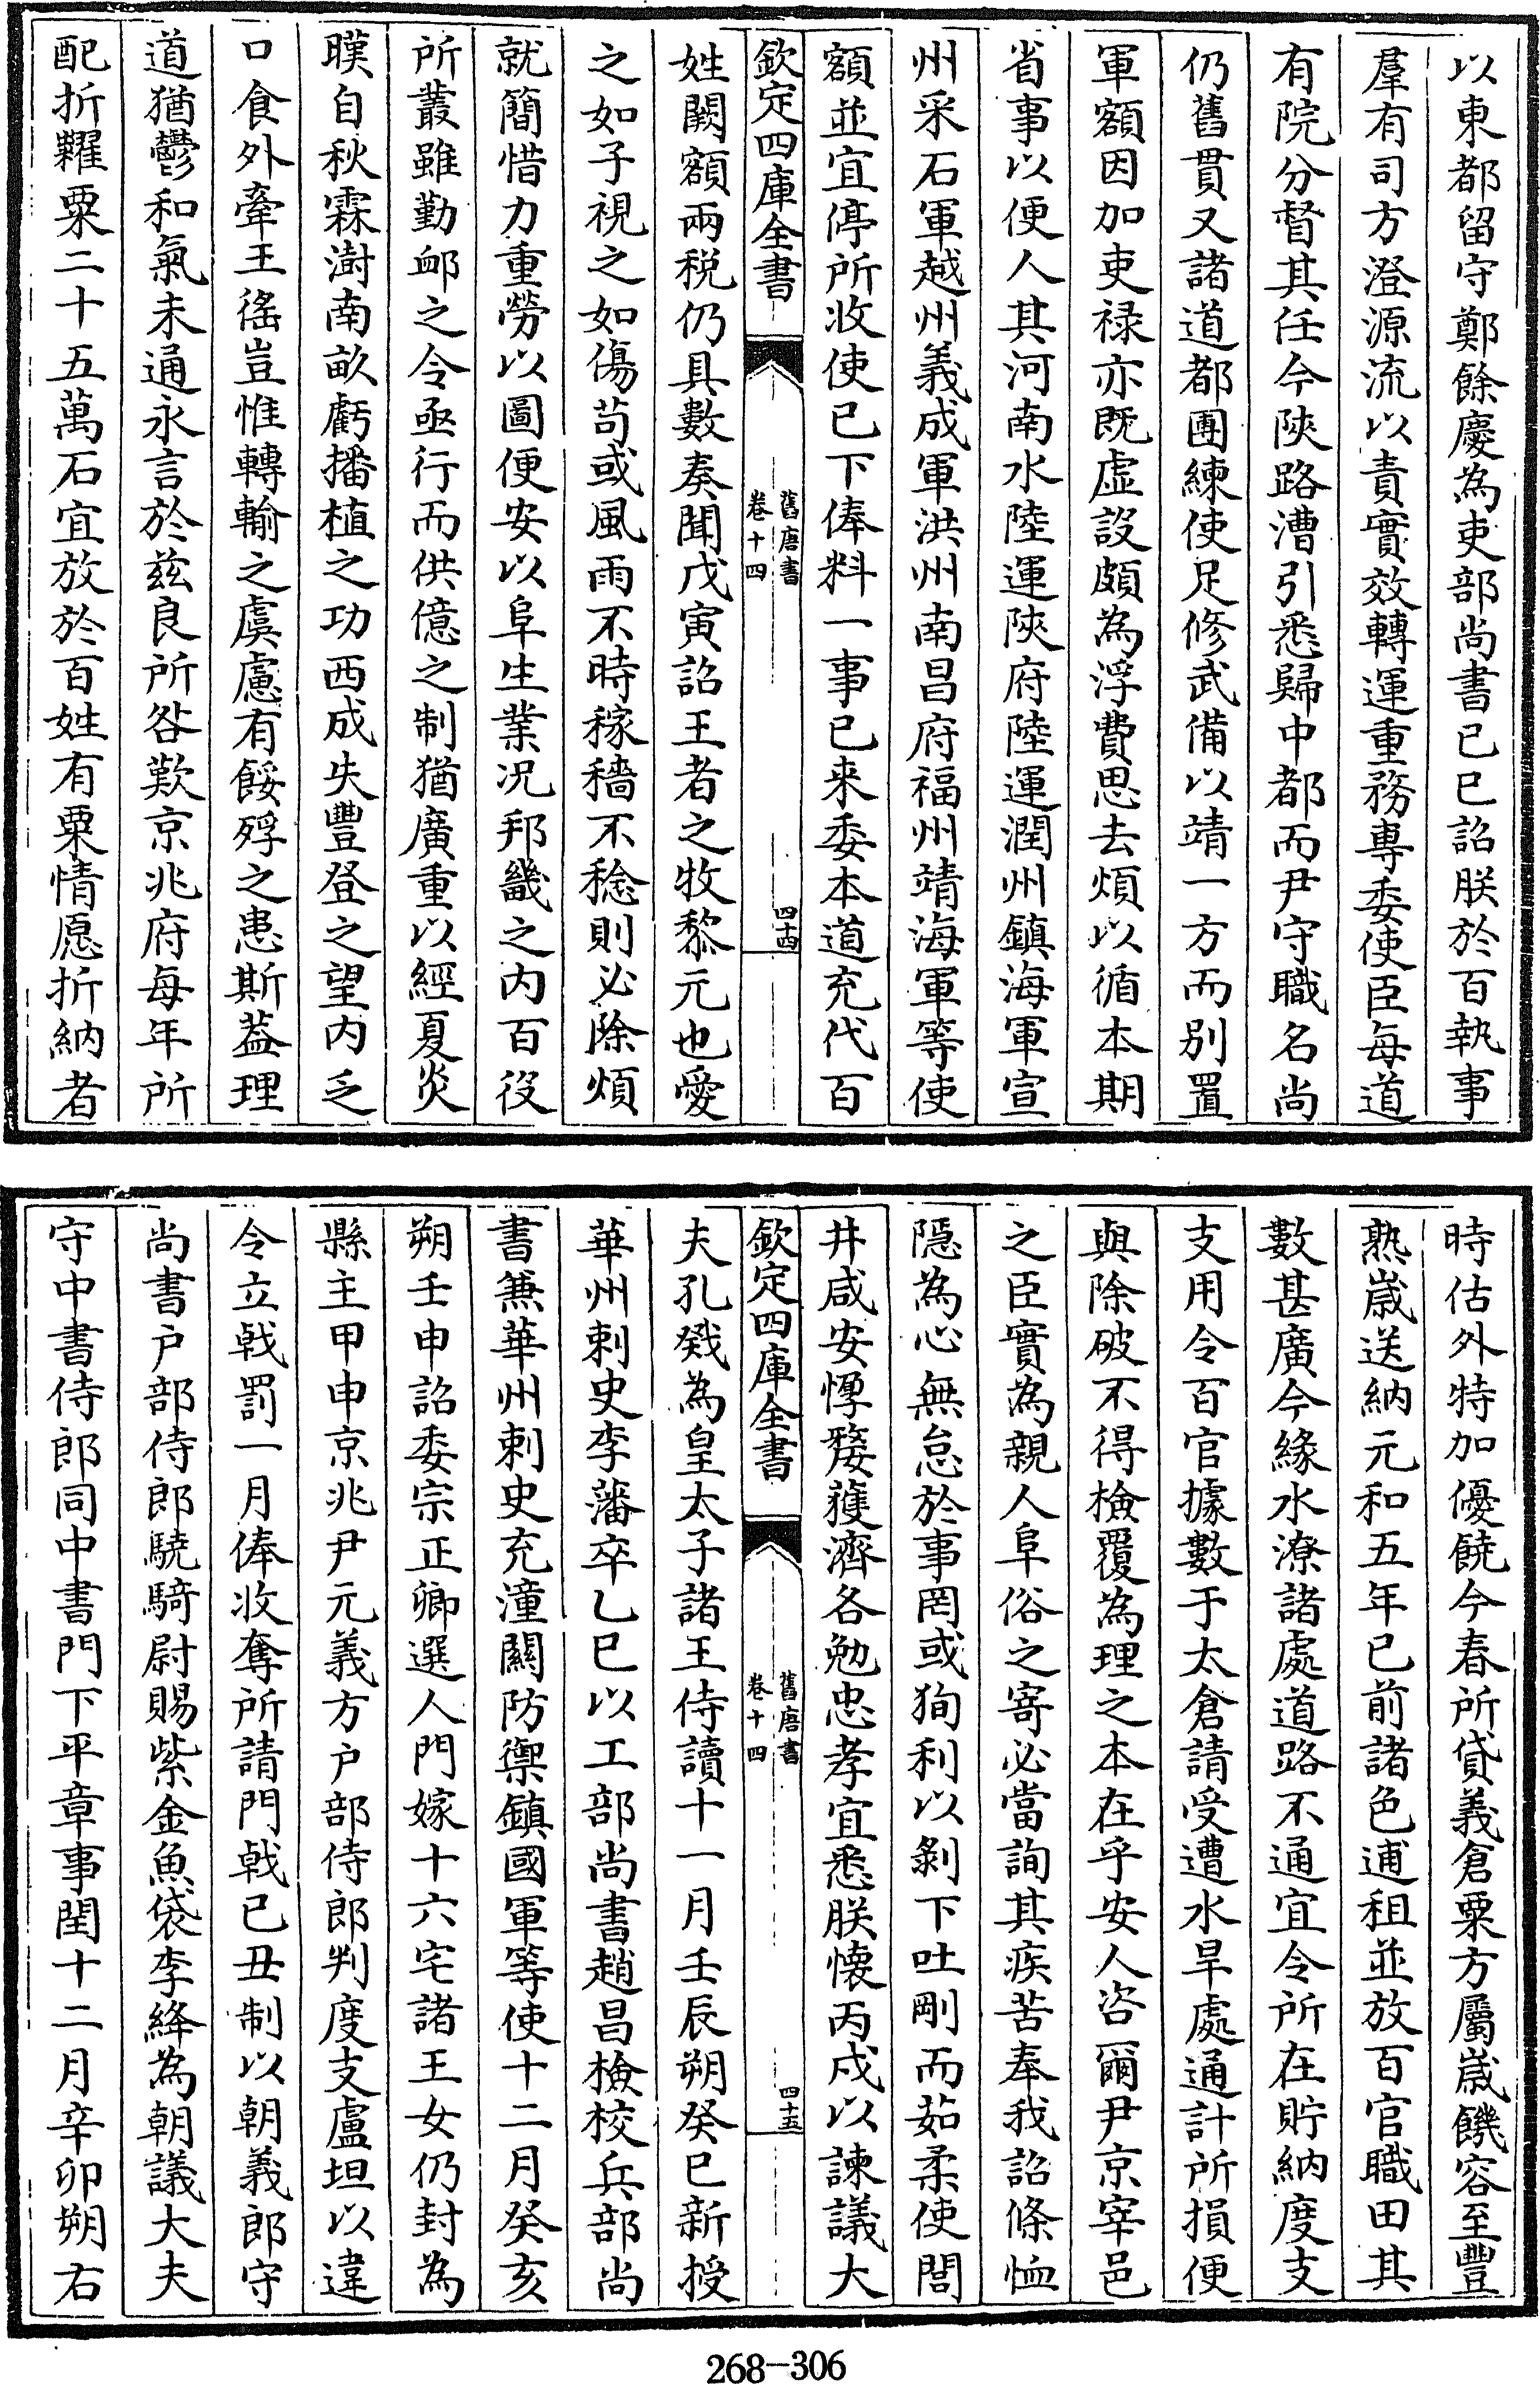 以東都留守鄭餘慶為吏部尚書己巳詔朕於百執事
羣有司方澄源流以責實效轉運重務專委使臣每道
有院分督其任今陜路漕引悉歸中都而尹守職名尚
仍舊貫又諸道都團練使足修武備以靖一方而别置
軍額因加吏禄亦既虚設頗為浮費思去煩以循本期
省事以便人其河南水陸運陜府陸運潤州鎮海軍宣
州采石軍越州義成軍洪州南昌府福州靖海軍等使
額並宜停所收使已下俸料一事已来委本道充代百
欽定四庫全書
舊唐書
卷十四
四十四
姓闕額兩税仍具數奏聞戊寅詔王者之牧黎元也愛
之如子視之如傷苟或風雨不時稼穡不稔則必除煩
就簡惜力重勞以圖便安以阜生業况邦畿之内百役
所叢雖勤䘏之令亟行而供億之制猶廣重以經夏炎
暵自秋霖澍南畝虧播植之功西成失豐登之望内乏
口食外牽王徭豈惟轉輸之虞慮有餒殍之患斯葢理
道猶鬱和氣未通永言於兹良所咎歎京兆府每年所
配折糴粟二十五萬石宜放於百姓有粟情愿折納者
時估外特加優饒今春所貸義倉粟方屬嵗饑容至豐
熟嵗送納元和五年已前諸色逋租並放百官職田其
數甚廣今緣水潦諸處道路不通宜令所在貯納度支
支用令百官據數于太倉請受遭水旱處通計所損便
與除破不得檢覆為理之本在乎安人咨爾尹京宰邑
之臣實為親人阜俗之寄必當詢其疾苦奉我詔條恤
隠為心無怠於事罔或狥利以剝下吐剛而茹柔使閭
井咸安惸嫠獲濟各勉忠孝宜悉朕懐丙戌以諫議大
欽定四庫全書
舊唐書
卷十四
四十五
夫孔戣為皇太子諸王侍讀十一月壬辰朔癸巳新授
華州刺史李藩卒乙巳以工部尚書趙昌檢校兵部尚
書兼華州刺史充潼關防禦鎮國軍等使十二月癸亥
朔壬申詔委宗正卿選人門嫁十六宅諸王女仍封為
縣主甲申京兆尹元義方户部侍郎判度支盧坦以違
令立戟罰一月俸收奪所請門戟已丑制以朝義郎守
尚書户部侍郎驍騎尉賜紫金魚袋李絳為朝議大夫
守中書侍郎同中書門下平章事閏十二月辛卯朔右
268-306